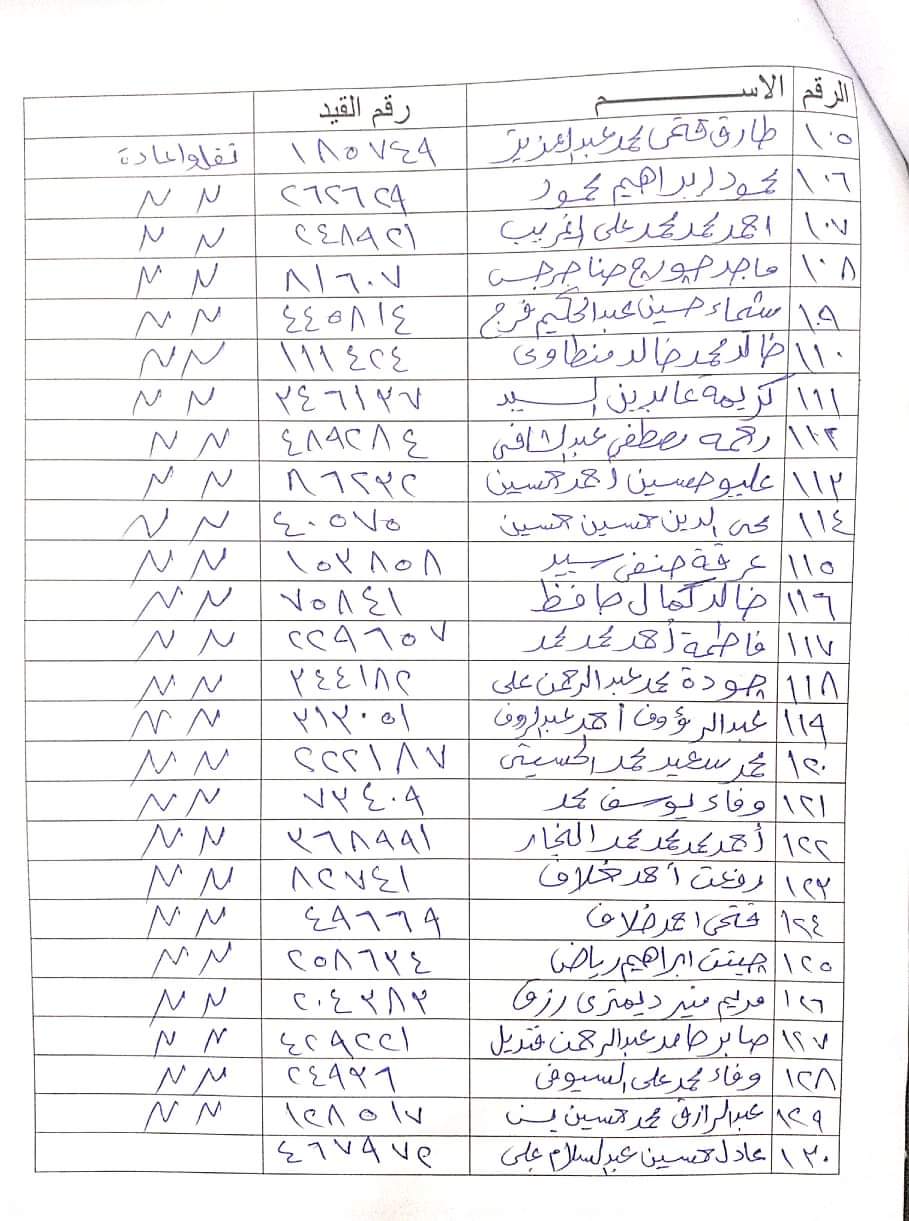 الرقم الاســـــــم رقم القيد
١٠٥ طارق فتحى محمد عبدالعزيز ١٨٥٧٤٩ نقل وإعادة
١٠٦ محمود إبراهيم محمود ٢٦٢٦٢٩ 〃 〃
١٠٧ احمد محمد محمد على الغريب ٢٤٨٩٢١ 〃 〃
١٠٨ ماجد جورج حنا جرجس ٨١٦٠٧ 〃 〃
١٠٩ شماء حسين عبدالحكيم فرج ٤٤٥٨١٤ 〃 〃
١١٠ خالد محمد خالد منطاوى ١١١٤٢٤ 〃 〃
١١١ كريمة عابدين السيد ٣٤٦١٣٧ 〃 〃
١١٢ رحمه مصطفي عبدالشافى ٤٨٩٢٨٤ 〃 〃
١١٣ عليو حسين أحمد حسين ٨٦٢٣٢ 〃 〃
١١٤ محى الدين حسين حسين ٤٠٥٧٥ 〃 〃
١١٥ عرفة حنفى سيد ١٥٣٨٥٨ 〃 〃
١١٦ خالد كمال حافظ ٧٥٨٤١ 〃 〃
١١٧ فاطمة أحمد محمد محمد ٢٢٩٦٥٧ 〃 〃
١١٨ جودة محمد عبدالرحمن على ٣٤٤١٨٢ 〃 〃
١١٩ عبدالرؤوف أحمد عبدالروف ٣١٣٠٥١ 〃 〃
١٢٠ محمد سعيد محمد الحسيني ٢٢٢١٨٧ 〃 〃
١٢١ وفاء يوسف محمد ٧٣٤٠٩ 〃 〃
١٢٢ أحمد محمد محمد النجار ٣٦٨٩٩١ 〃 〃
١٢٣ رفعت أحمد خلاف ٨٢٧٤١ 〃 〃
١٢٤ فتحى احمد خلاف ٤٩٦٦٩ 〃 〃
١٢٥ جينت ابراهيم رياض ٢٥٨٦٣٤ 〃 〃
١٢٦ مريم منير ديمترى رزق ٢٠٤٣٨٣ 〃 〃
١٢٧ صابر حامد عبدالرحمن قنديل ٤٢٩٢٢١ 〃 〃
١٢٨ وفاء محمد على السيوفى ٢٤٩٣٦ 〃 〃
١٢٩ عبدالرازق محمد حسين يس ١٢٨٥١٧ 〃 〃
١٣٠ عادل حسين عبدالسلام على ٤٦٧٩٧٥